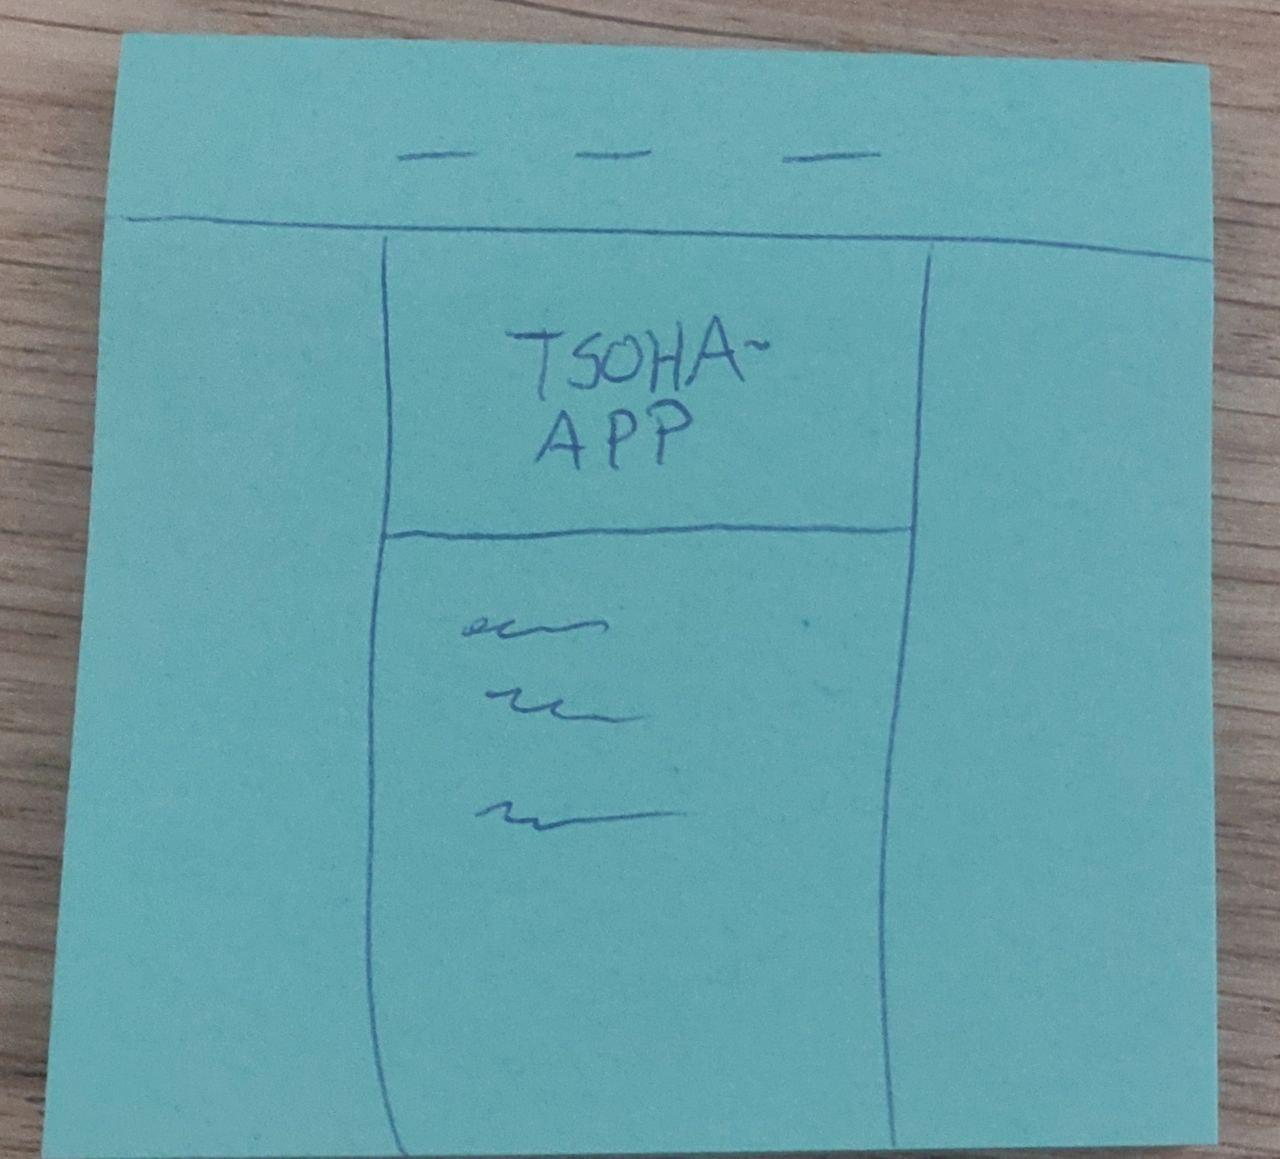 TSOHA-
APP